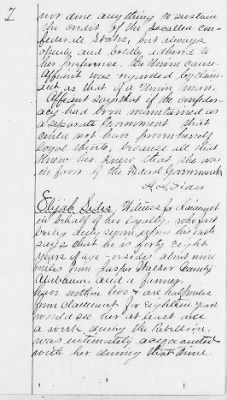 7
not done anything to sustain
the credit of the so called con-
federate States, but always
openly and boldly adhered to
her preference. the Union cause.
Affiant was regarded by claim-
ant as that of a Union man.
Affiant says that if the confeder-
acy had been maintained as
a separate Government that
could not have proven herself
loyal theirto, because all that
knew her knew that she was
in favor of the Federal Government
Elijah Sides, Witness for claimant
in behalf of her loyalty, who first
being duly sworn upon his oath
says that he is forty eight
years of age - resides about nine
miles from Jasper Walker County
Alabama, and a farmer,
have within two & one half miles
from claimant for eighteen years
would see her at least once
a week during the Rebellion,
was intimately acquainted
with her during that time